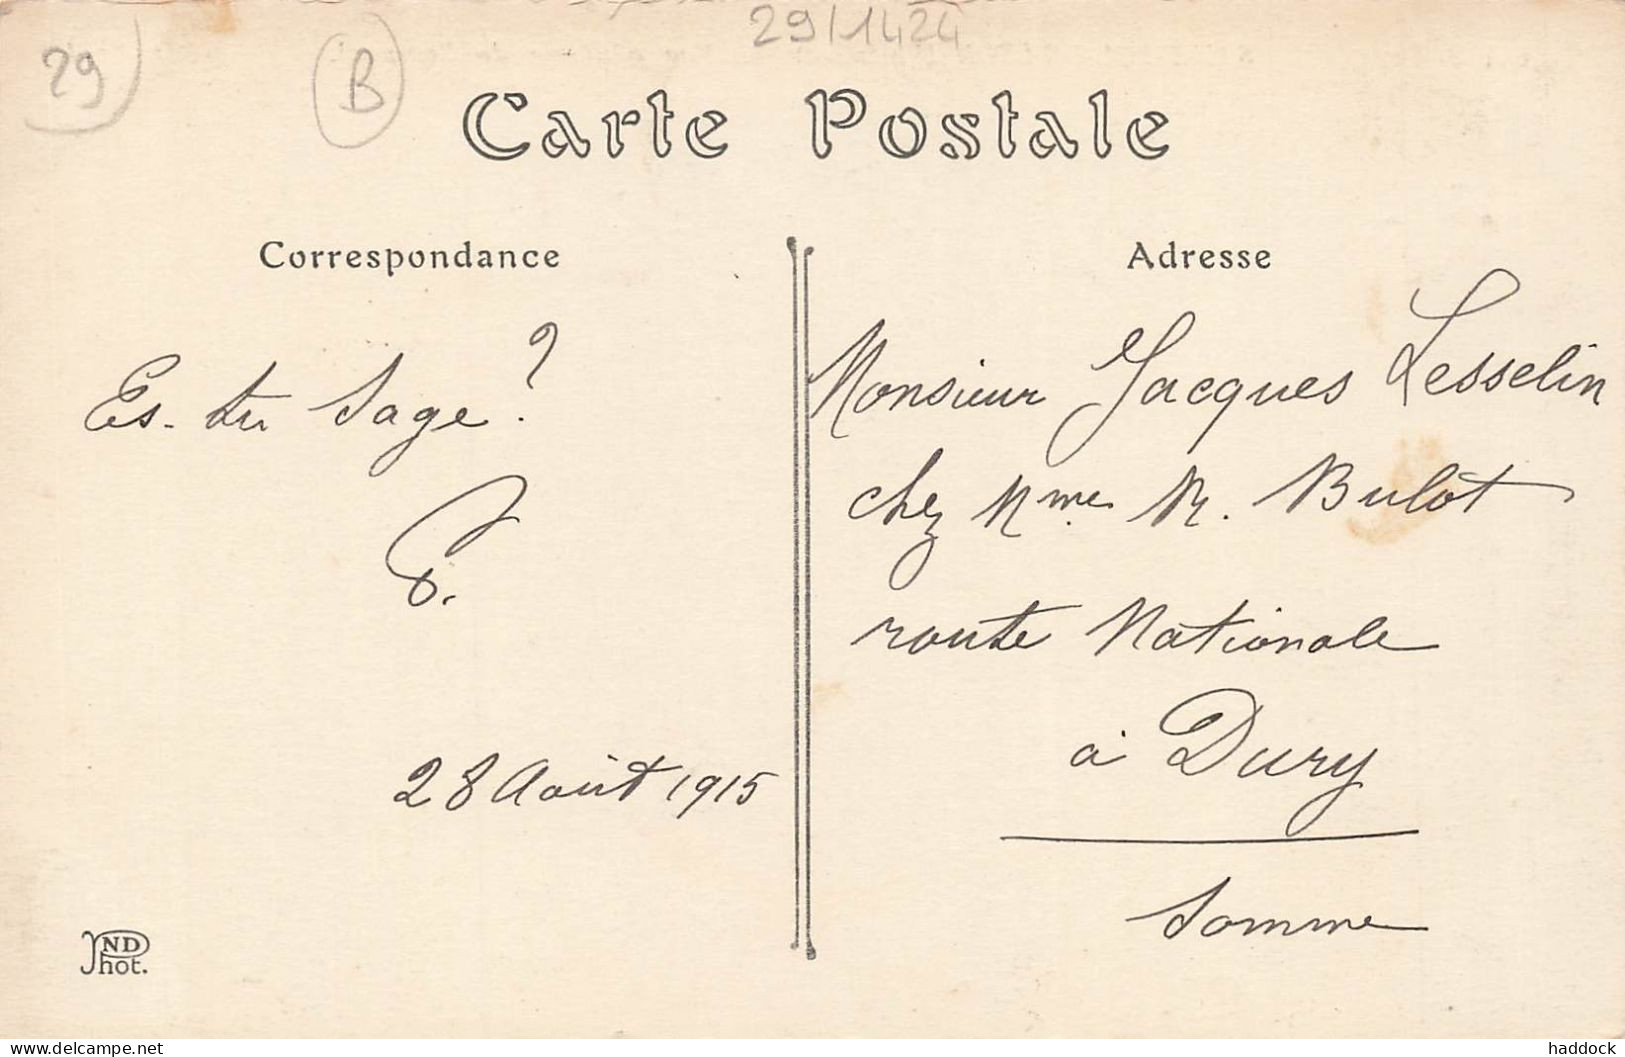 29
B
29/1424
Carte Postale
Correspondance
Es-tu Sage ?
28 Août 1915
ND Phot.
Adresse
Monsieur Jacques Lesselin
chez Mme M. Bulot
route Nationale
à Dury
Somme
www.delcampe.net
haddock